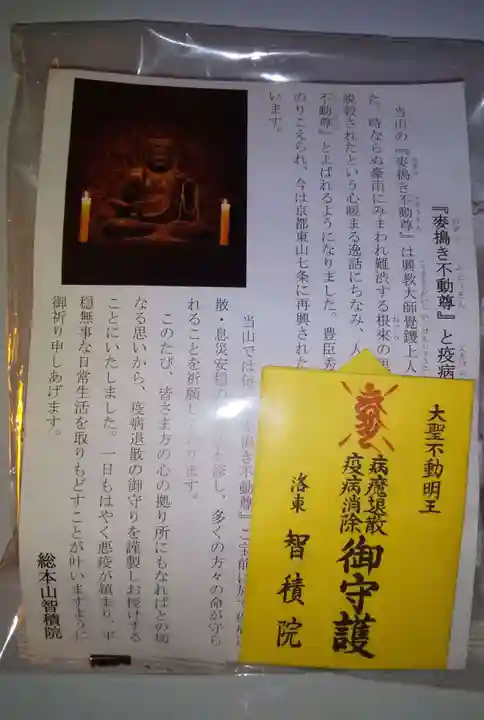 『麥搗き不動尊』と疫病
当山の『麥搗き不動尊』は興教大師覺鑁上人
た。時ならぬ豪雨にみまわれ難渋する根來の
脱穀されたという心暖まる逸話にちなみ、人
不動尊』と上ばれるようになりました。豊臣秀
のりこえられ、今は京都東山七条に再興された
います。
当山では毎
散・息災安穏 を修し、多くの方々の命が守ら
れることを祈願し ております。
このたび、皆さま方の心の拠り所にもなればとの切
なる思いから、疫病退散の御守りを謹製しお授けする
ことにいたしました。一日もはやく悪疫が鎮まり、平
穏無事な日常生活を取りもどすことが叶いますように
御祈り申しあげます。
総本山智積院
大聖不動明王
病魔退散
疫病消除
御守護
洛東 智積院